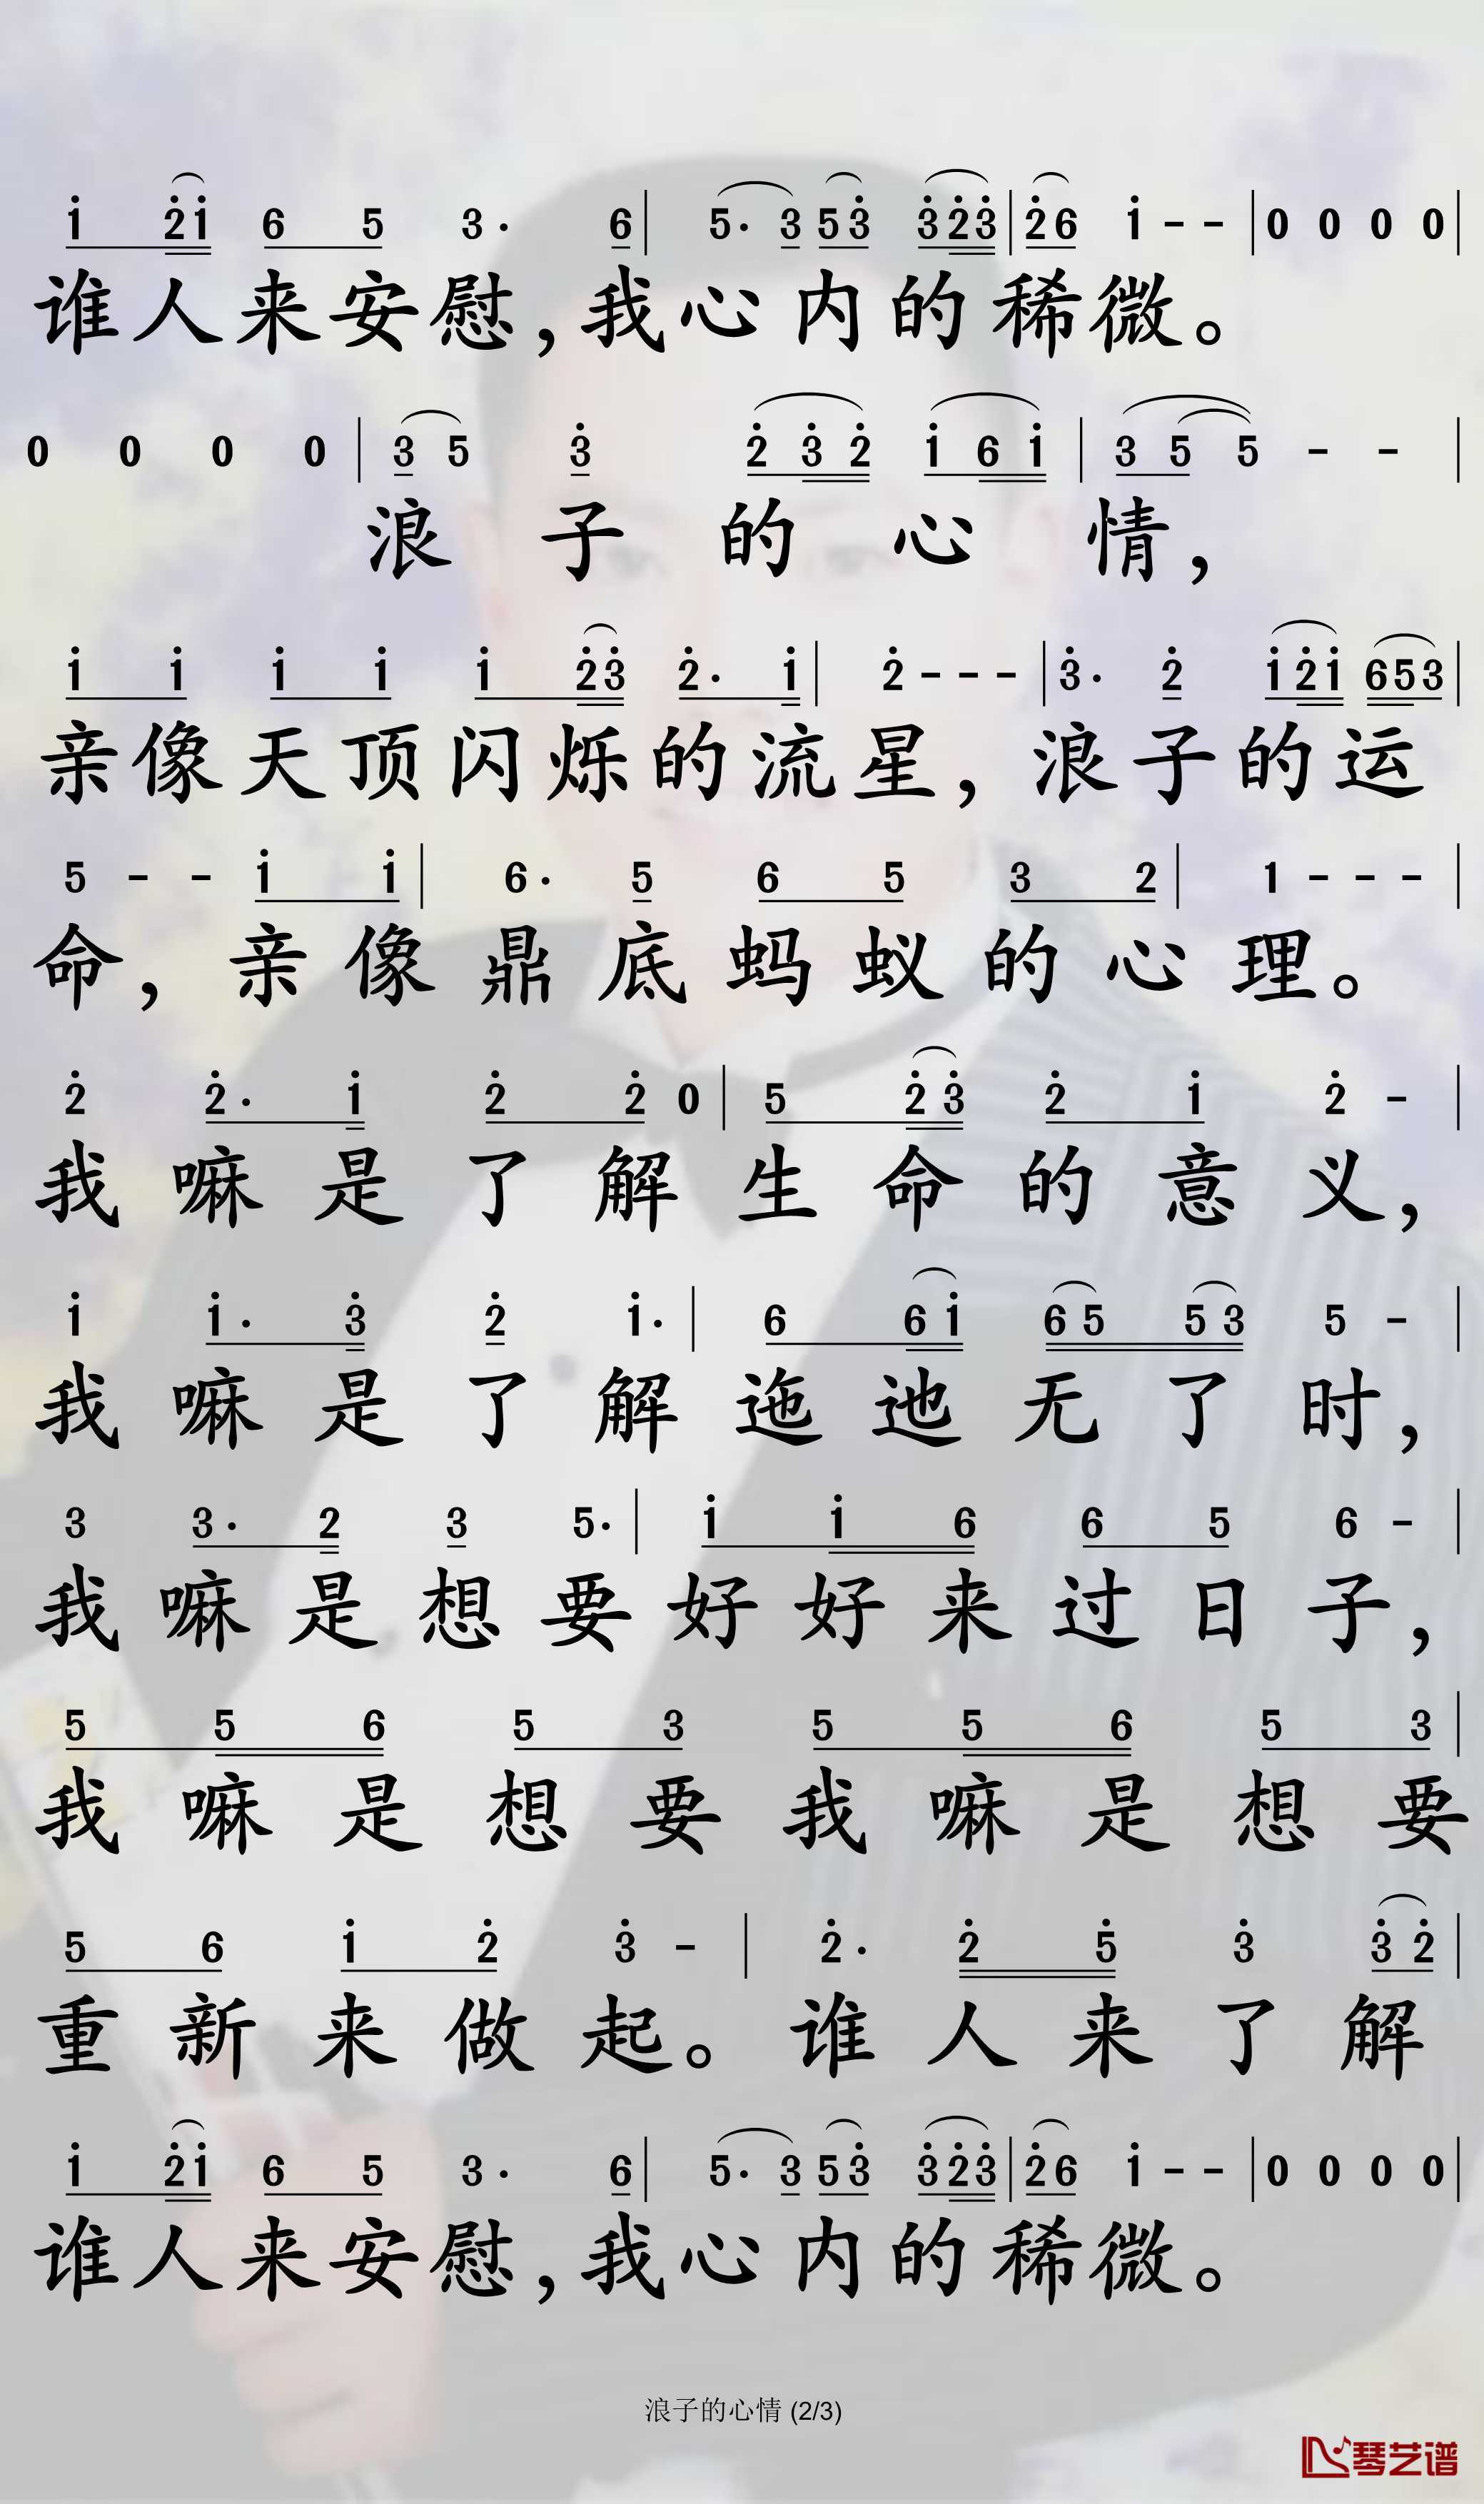 i 2̇i̇ 6 5 3· 6 | 5·3 53̇ 3̇2̇3̇ | 2̇6 i̇ - - | 0 0 0 0 |
谁人来安慰,我心内的稀微。
0 0 0 0 | 3 5 3̇ 2̇3̇2̇ i̇6i̇ | 3 5 5 - - |
浪子的心情,
i̇ i̇ i̇ i̇ i̇ 2̇3̇ 2̇· i̇ | 2̇ - - - | 3̇· 2̇ i̇2̇i̇ 653 |
亲像天顶闪烁的流星,浪子的运
5 - - i̇ i̇ | 6· 5 6 5 3 2 | 1 - - - |
命,亲像鼎底蚂蚁的心理。
2̇ 2̇· i̇ 2̇ 2̇ 0 | 5 2̇3̇ 2̇ i̇ 2̇ - |
我嘛是了解生命的意义,
i̇ i̇· 3̇ 2̇ i̇· | 6 6i̇ 65 53 5 - |
我嘛是了解迤迆无了时,
3 3· 2 3 5· | i̇ i̇ 6 6 5 6 - |
我嘛是想要好好来过日子,
5 5 6 5 3 5 5 6 5 3 |
我嘛是想要我嘛是想要
5 6 i̇ 2̇ 3̇ - | 2̇· 2̇ 5̇ 3̇ 3̇2̇ |
重新来做起。谁人来了解
i̇ 2̇i̇ 6 5 3· 6 | 5·3 53̇ 3̇2̇3̇ | 2̇6 i̇ - - | 0 0 0 0 |
谁人来安慰,我心内的稀微。
浪子的心情 (2/3)
琴艺谱